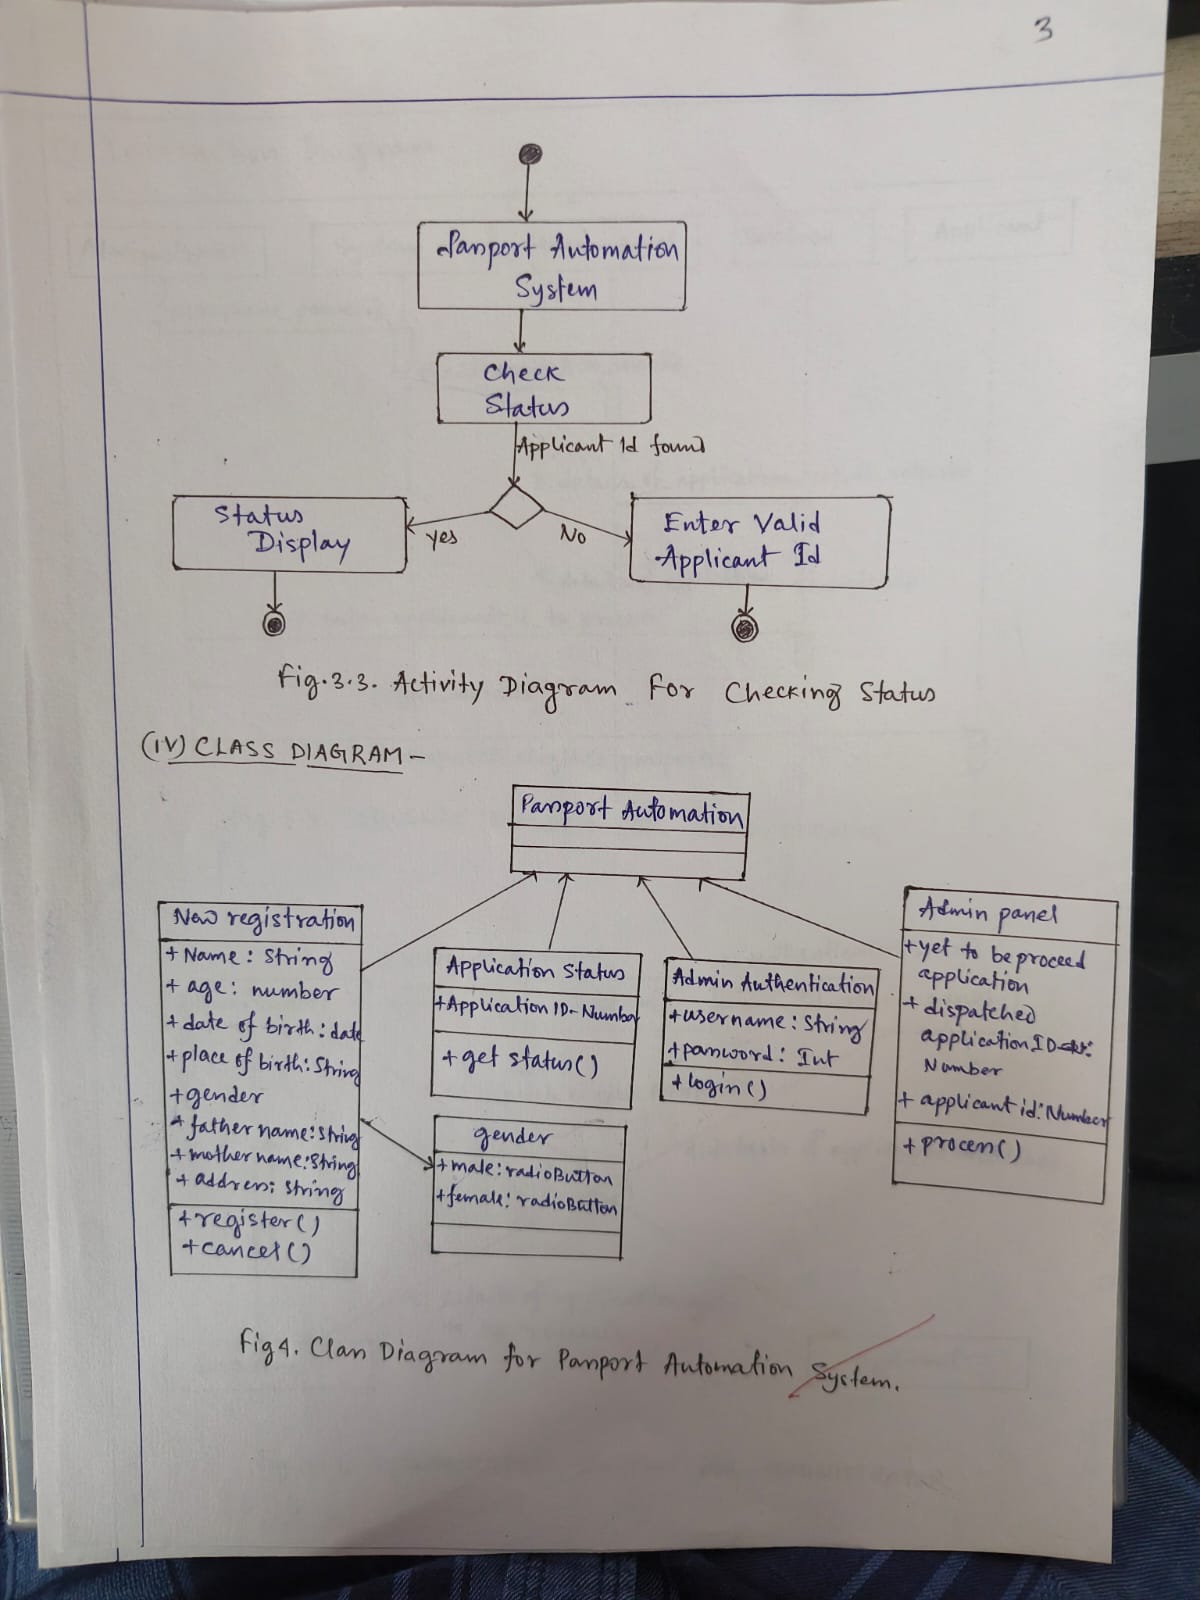 3
Passport Automation
System
Check
Status
Applicant Id found
Status
Display
yes
No
Enter Valid
Applicant Id
Fig.3.3. Activity Diagram For Checking Status
(IV) CLASS DIAGRAM -
Passport Automation
New registration
+ Name: String
+ age: number
+ date of birth: date
+ place of birth: String
+ gender
+ father name: String
+ mother name: String
+ address: String
+ register()
+ cancel()
Application Status
+Application ID- Number
+ get status()
gender
+ male: radioButton
+ female: radioButton
Admin Authentication
+ username: String
+ password: Int
+ login()
Admin panel
+ yet to be proceed
application
+ dispatched
application ID:
Number
+ applicant id: Number
+ process()
Fig 4. Class Diagram for Passport Automation System.